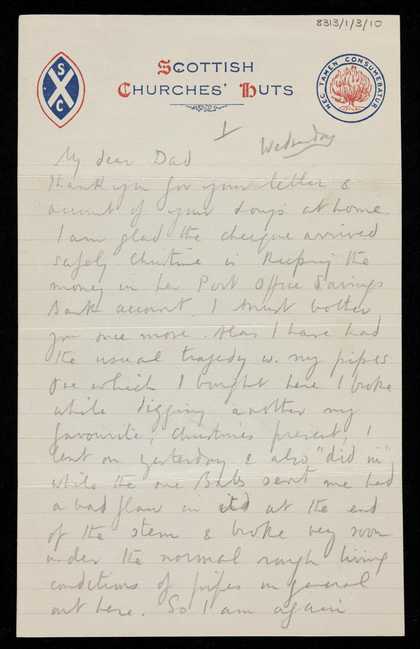 8313/1/3/10
SCOTTISH
CHURCHES' HUTS
S
C
NEC TAMEN CONSUMEBATUR
1
Wednesday
My dear Dad
Thank you for your letter &
account of your doings at home.
I am glad the cheque arrived
safely Christine is keeping the
money in her Post Office Savings
Bank account. I must bother
you once more. Alas I have had
the usual tragedy w. my pipes
One which I bought here I broke
while digging another my
favourite, Christine's present, I
lent on yesterday & also "did in"
while the one Babs sent me had
a bad flaw in it at the end
of the stem & broke very soon
under the normal rough living
conditions of pipes in general
out here. So I am again